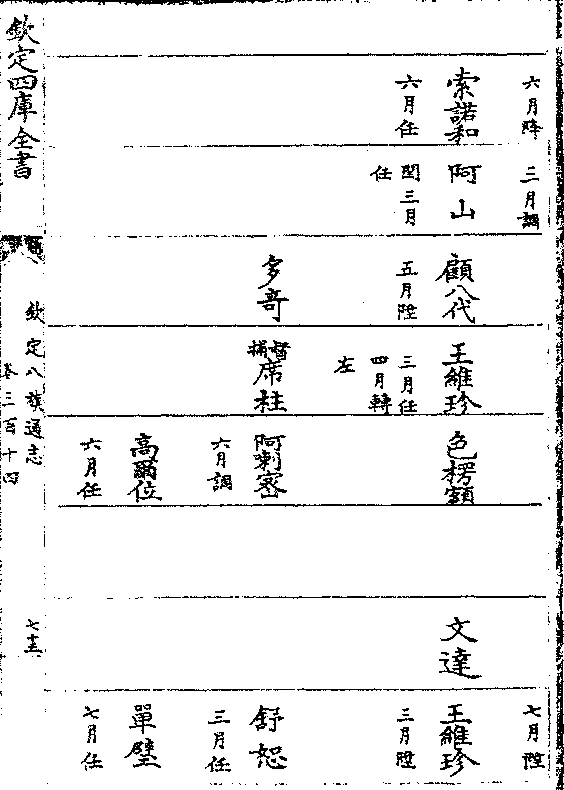 六月陞
索諾和
六月任
三月調
阿山
閏三月
任
顧八代
五月陞
多奇
王維珍
三月任
四月轉
左
督捕
席柱
色楞額
阿喇密
六月調
高爾位
六月任
文達
七月陞
王維珍
三月陞
舒恕
三月任
單璧
七月任
欽定四庫全書
欽定八旗通志
卷三百十四